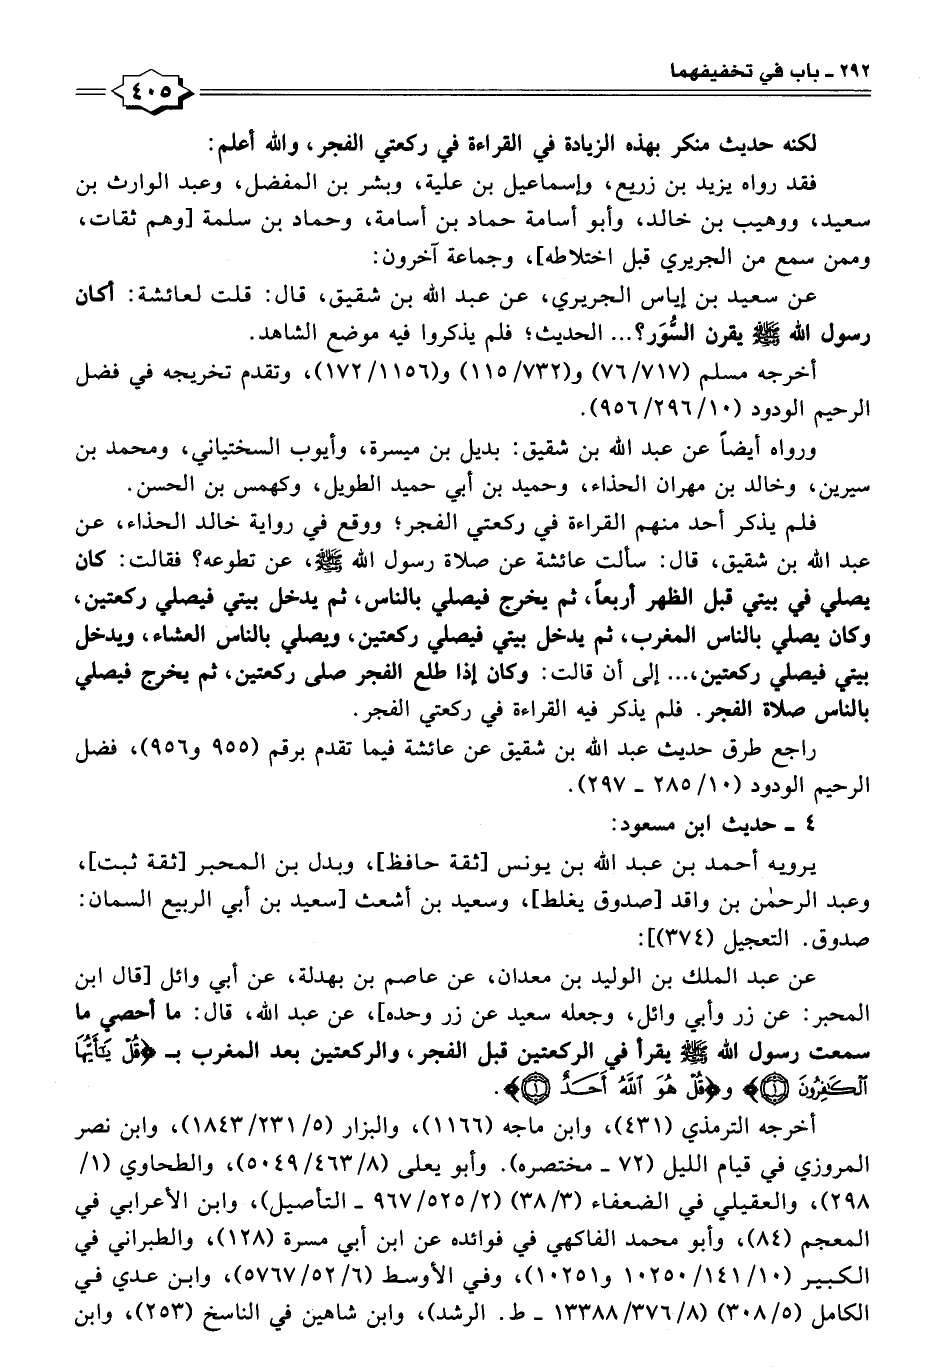 ٢٩٢ - باب في تخفيفهما
٤٠٥
لكنه حديث منكر بهذه الزيادة في القراءة في ركعتي الفجر، والله أعلم:
فقد رواه يزيد بن زريع، وإسماعيل بن علية، وبشر بن المفضل، وعبد الوارث بن
سعيد، ووهيب بن خالد، وأبو أسامة حماد بن أسامة، وحماد بن سلمة [وهم ثقات،
وممن سمع من الجريري قبل اختلاطه]، وجماعة آخرون:
عن سعيد بن إياس الجريري، عن عبد الله بن شقيق، قال: قلت لعائشة: أكان
رسول الله ﷺ يقرن السُّوَر؟... الحديث؛ فلم يذكروا فيه موضع الشاهد.
أخرجه مسلم (٧٦/٧١٧) و(١١٥/٧٣٢) و(١٧٢/١١٥٦)، وتقدم تخريجه في فضل
الرحيم الودود (٩٥٦/٢٩٦/١٠).
ورواه أيضاً عن عبد الله بن شقيق: بديل بن ميسرة، وأيوب السختياني، ومحمد بن
سيرين، وخالد بن مهران الحذاء، وحميد بن أبي حميد الطويل، وكهمس بن الحسن.
فلم يذكر أحد منهم القراءة في ركعتي الفجر؛ ووقع في رواية خالد الحذاء، عن
عبد الله بن شقيق، قال: سألت عائشة عن صلاة رسول الله ﷺ، عن تطوعه؟ فقالت: كان
يصلي في بيتي قبل الظهر أربعاً، ثم يخرج فيصلي بالناس، ثم يدخل بيتي فيصلي ركعتين،
وكان يصلي بالناس المغرب، ثم يدخل بيتي فيصلي ركعتين، ويصلي بالناس العشاء، ويدخل
بيتي فيصلي ركعتين،... إلى أن قالت: وكان إذا طلع الفجر صلى ركعتين، ثم يخرج فيصلي
بالناس صلاة الفجر. فلم يذكر فيه القراءة في ركعتي الفجر.
راجع طرق حديث عبد الله بن شقيق عن عائشة فيما تقدم برقم (٩٥٥ و٩٥٦)، فضل
الرحيم الودود (٢٨٥/١٠ - ٢٩٧).
٤ - حديث ابن مسعود:
يرويه أحمد بن عبد الله بن يونس [ثقة حافظ]، وبدل بن المحبر [ثقة ثبت]،
وعبد الرحمٰن بن واقد [صدوق يغلط]، وسعيد بن أشعث [سعيد بن أبي الربيع السمان:
صدوق. التعجيل (٣٧٤)]:
عن عبد الملك بن الوليد بن معدان، عن عاصم بن بهدلة، عن أبي وائل [قال ابن
المحبر: عن زر وأبي وائل، وجعله سعيد عن زر وحده]، عن عبد الله، قال: ما أحصي ما
سمعت رسول الله ﷺ يقرأ في الركعتين قبل الفجر، والركعتين بعد المغرب بـ ﴿قُلْ يَٰٓأَيُّهَا
ٱلْكَٰفِرُونَ ۝١﴾ و﴿قُلْ هُوَ ٱللَّهُ أَحَدٌ ۝١﴾.
أخرجه الترمذي (٤٣١)، وابن ماجه (١١٦٦)، والبزار (١٨٤٣/٢٣١/٥)، وابن نصر
المروزي في قيام الليل (٧٢ - مختصره). وأبو يعلى (٥٠٤٩/٤٦٣/٨)، والطحاوي (١/
٢٩٨)، والعقيلي في الضعفاء (٣٨/٣) (٩٦٧/٥٢٥/٢ - التأصيل)، وابن الأعرابي في
المعجم (٨٤)، وأبو محمد الفاكهي في فوائده عن ابن أبي مسرة (١٢٨)، والطبراني في
الكبير (١٠٢٥٠/١٤١/١٠ و١٠٢٥١)، وفي الأوسط (٥٧٦٧/٥٢/٦)، وابن عدي في
الكامل (٣٠٨/٥) (١٣٣٨٨/٣٧٦/٨ - ط. الرشد)، وابن شاهين في الناسخ (٢٥٣)، وابن